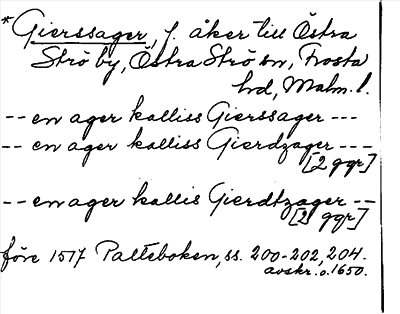 *Gierssager, f. åker till Östra
Strö by, Östra Strö sn, Frosta
hd, Malm. l.
-- en ager kalliss Gierssager ---
-- en ager kalliss Gierdzager ----
[2 ggr]
-- en ager kallis Gierdtzager --
[2 ggr]
före 1517 Palteboken, ss. 200-202, 204.
avskr. o. 1650.